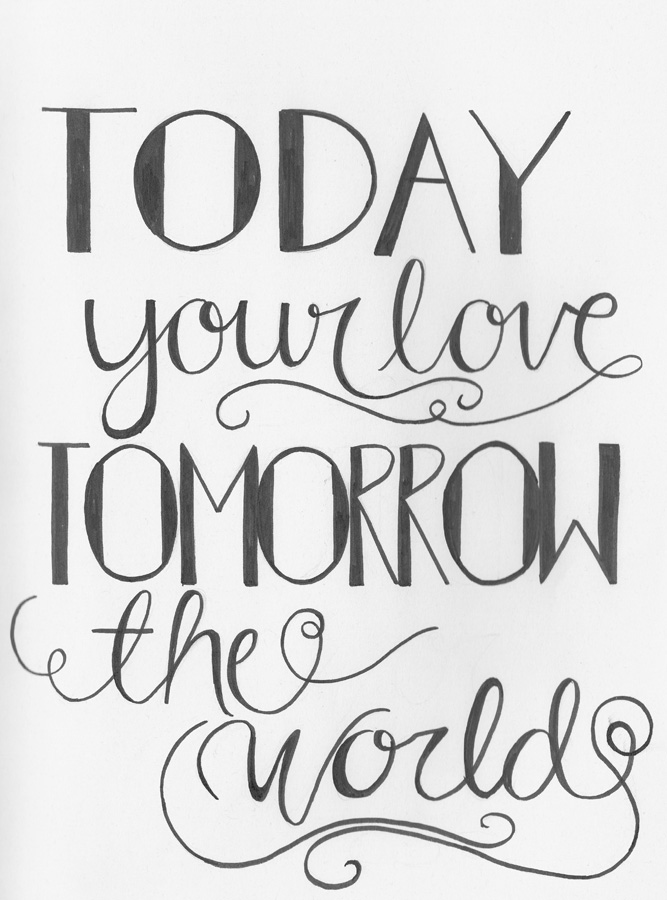 TODAY
your love
TOMORROW
the
world